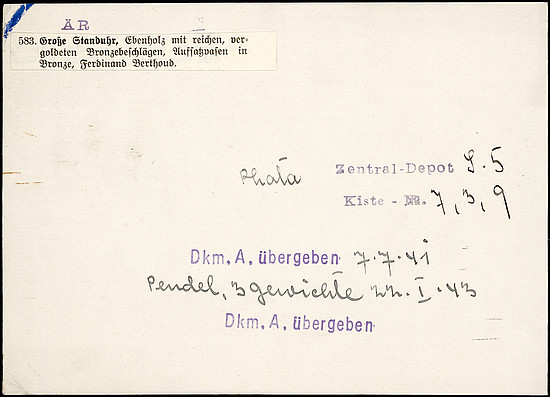 ÄR
583. Große Standuhr, Ebenholz mit reichen, ver-
goldeten Bronzebeschlägen, Aufsatzvasen in
Bronze, Ferdinand Berthoud.
Zentral-Depot S. 5
Kiste - Nr. 7, 3, 9
Dkm. A. übergeben 7.7.41
Pendel, 3 gewichte 22. I. 43
Dkm. A. übergeben